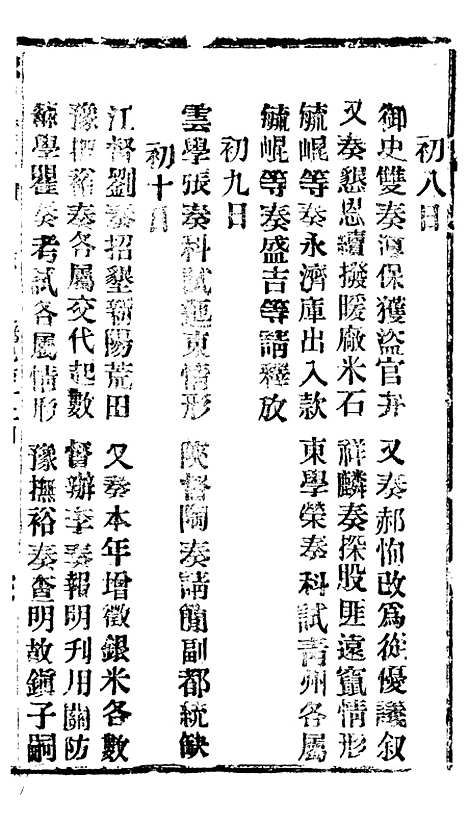 初八日
御史雙奏濫保獲盜官弁　又奏郝恂改為從優議叙
又奏懇恩續撥暖廠米石　祥麟奏探股匪遠竄情形
毓崐等奏永濟庫出入款　東學榮奏科試青州各屬
毓崐等奏盛吉等請釋放
初九日
雲學張奏科試迤東情形　陝督陶奏請簡副都統缺
初十日
江督劉奏招墾新陽荒田　又奏本年增徵銀米各數
豫撫裕奏各屬交代起數　督辦李奏報明刊用關防
學瞿奏考試各屬情形　豫撫裕奏查明故鎮子嗣